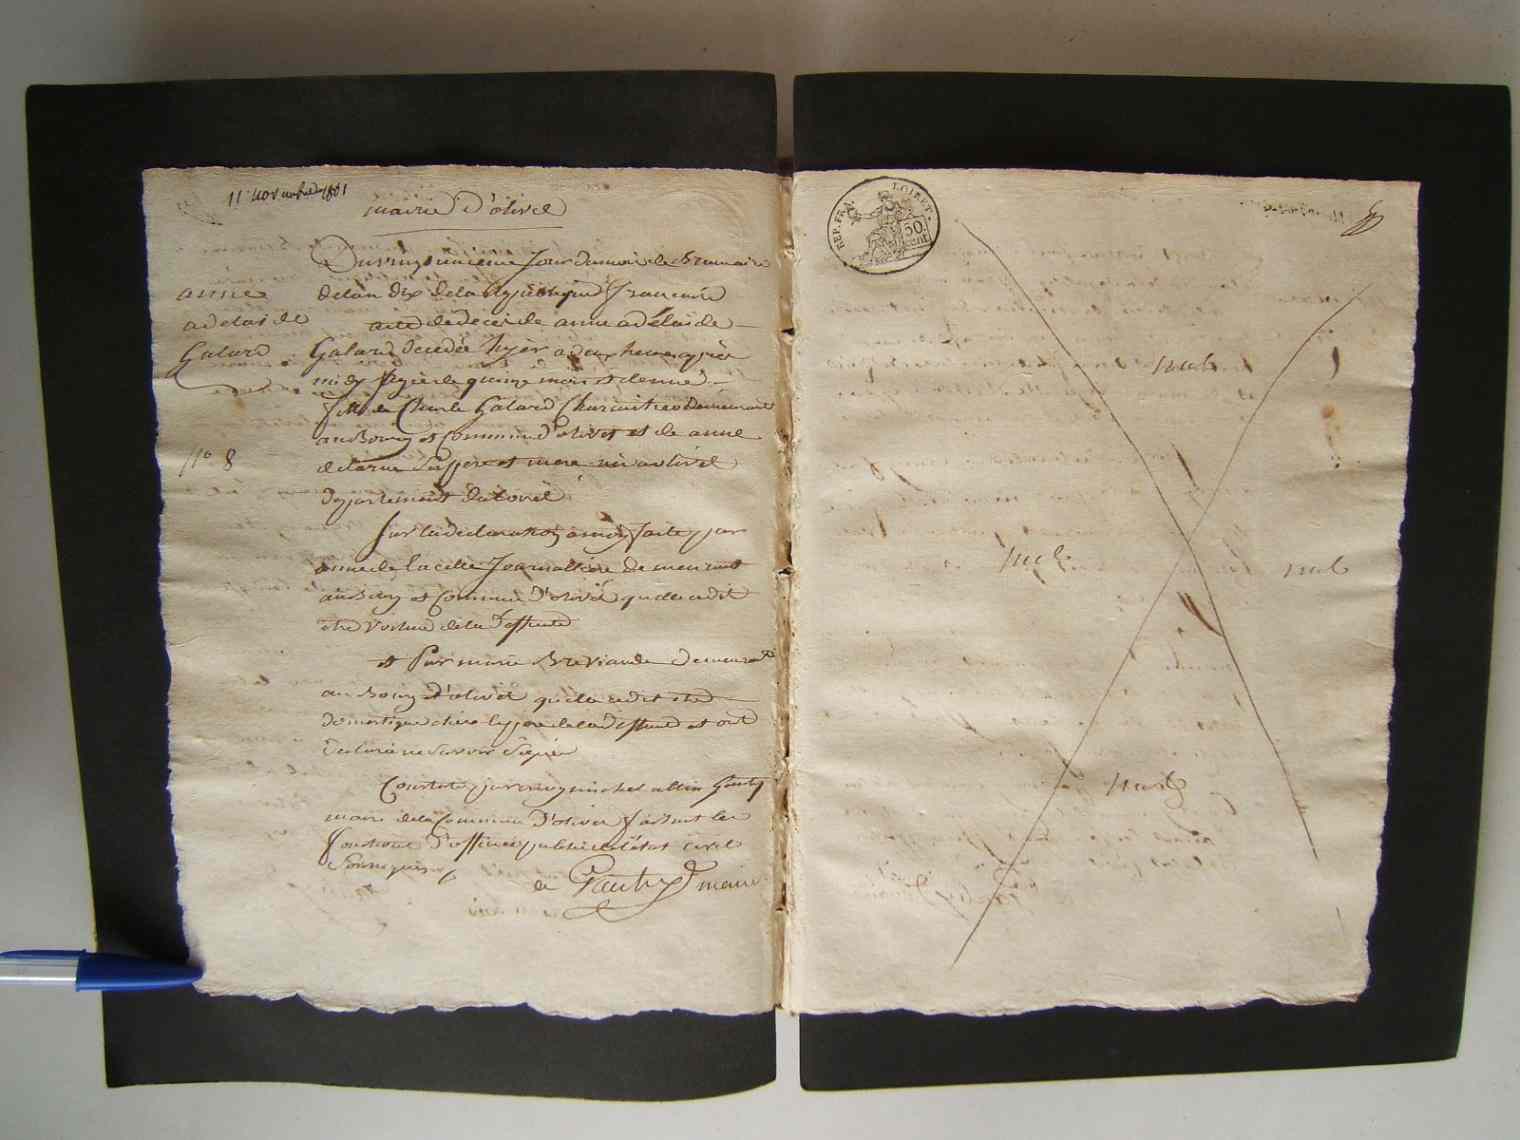 11 novembre 1801
mairie D'olivet
Du vingtieme Jour du mois de Brumaire
anne
adelaide
Galard
N° 8
de lan dix de la Republique francaise
acte de deces de anne adelaide
Galard Decedée hyer a deux heures apres
midy agée de quinze mois et demie
fille de Charle Galard Charcutier demeurant
au Bourg et Commune d'olivet et de anne
delarue Ses pere et mere né a olivet
departement du loiret
Sur la declaration a moy faite par
anne de lacelle Journalliere demeurant
au Bourg et Commune D'olivet quelle a dit
etre voisine de la deffunte
et Par marie Breviande Demeurant
au Bourg d'olivet quelle a dit etre
domestique chez le pere de la deffunte et ont
Declaré ne Savoir Signer
Constaté par moy michel albin Gauty
maire de la Commune D'olivet faisant les
fonctions D'officier public de l'état civil
Soussigné
Gauty maire
REP. FRA. LOIRET.
50 cent
nul
nul
nul
nul